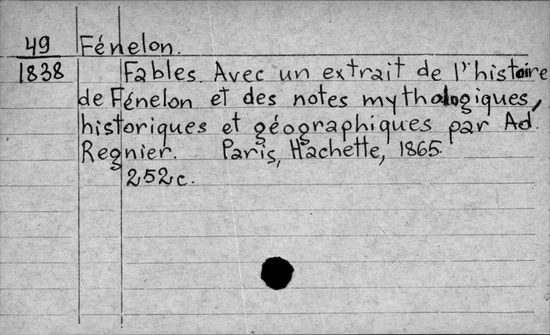 49 Fénelon.
1838 Fables. Avec un extrait de l'histoire
de Fénelon et des notes mythologiques,
historiques et géographiques par Ad.
Regnier. Paris, Hachette, 1865.
252c.